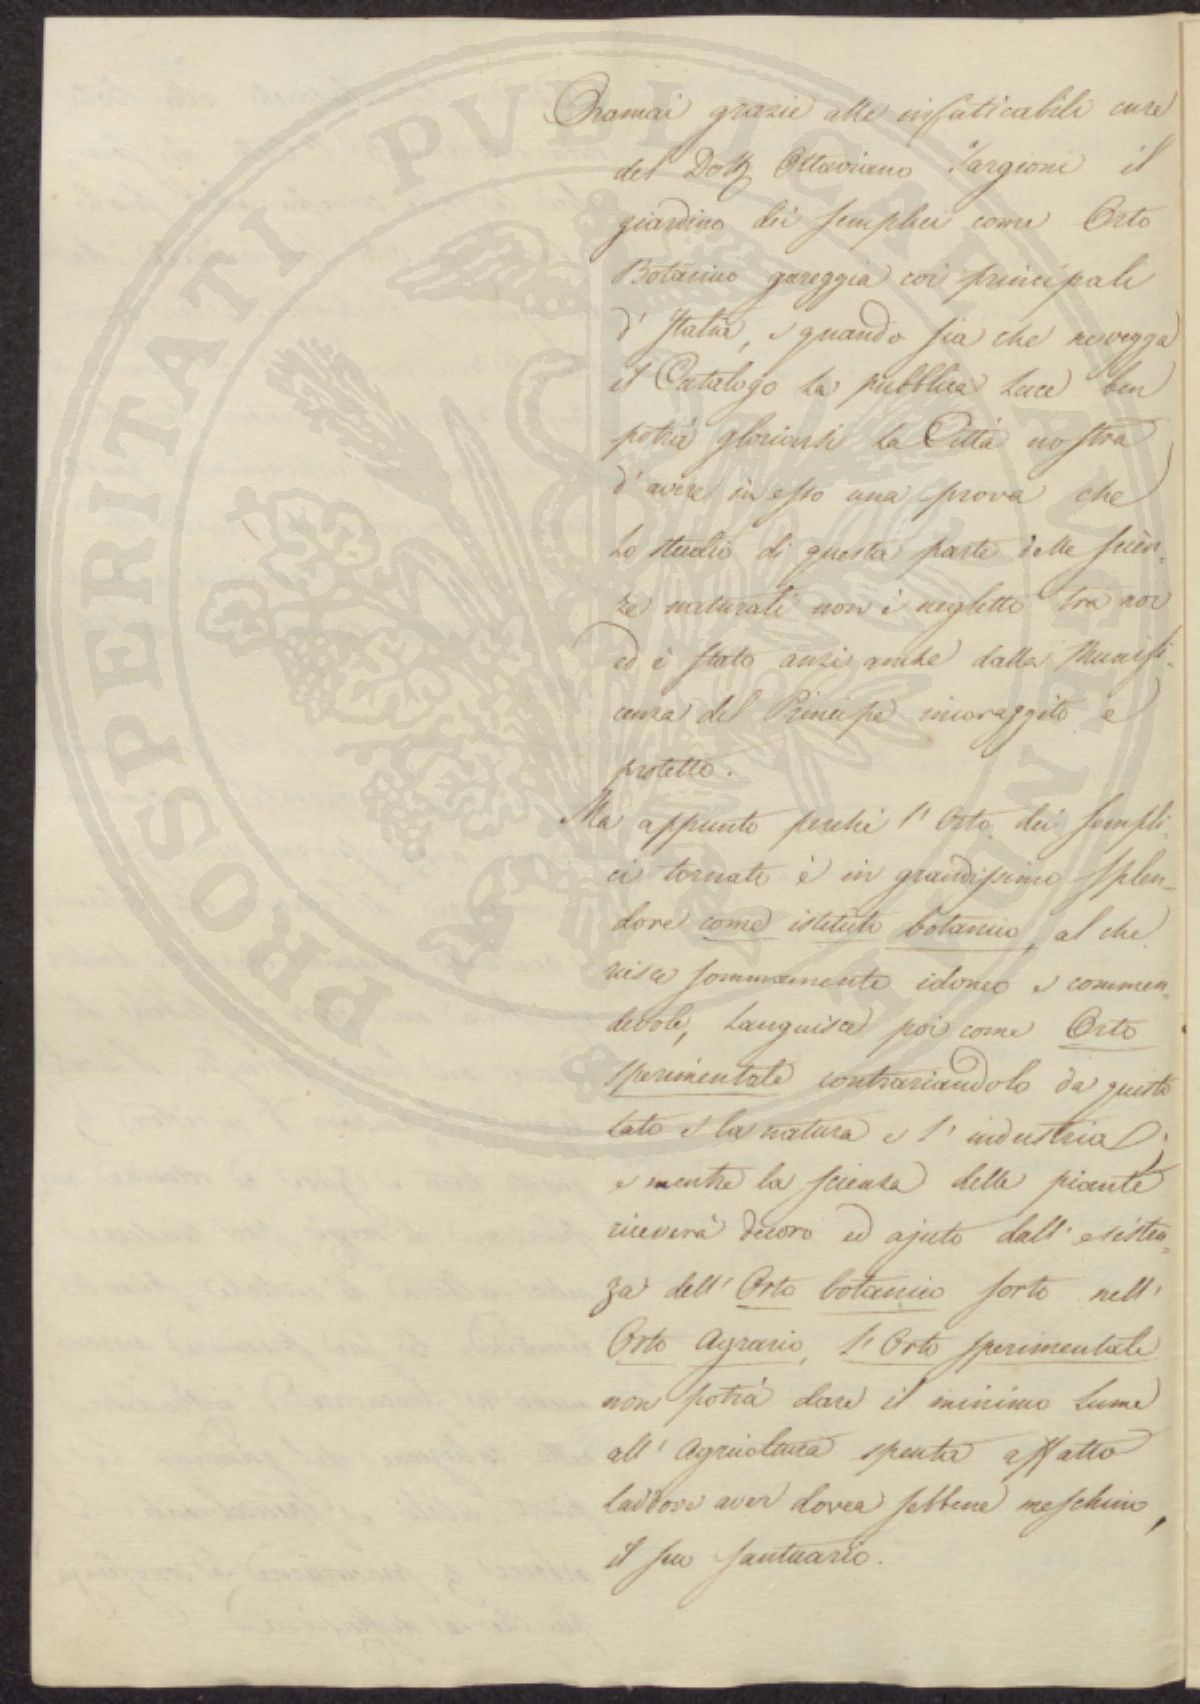 Oramai grazie alle infaticabili cure
del Dott. Ottaviano Targioni il
giardino dei semplici come Orto
Botanico gareggia coi principali
d' Italia, e quando sia che ne vegga
il Catalogo la pubblica luce ben
potrà gloriarsi la Città nostra
d' avere in esso una prova che
lo studio di questa parte delle scien-
ze naturali non è negletto tra noi
ed è stato anzi anche dalla Munifi-
cenza del Principe incoraggito e
protetto.
Ma appunto perchè l' Orto dei sempli-
ci tornato è in grandissimo splen-
dore come istituto botanico, al che
riesce sommamente idoneo e commen-
devole, languisce poi come Orto
sperimentale contrariandolo da questo
lato e la natura e l' industria;
e mentre la scienza delle piante
riceverà decoro ed ajuto dall' esisten-
za dell' Orto botanico sorto nell'
Orto Agrario, l' Orto sperimentale
non potrà dare il minimo lume
all' Agricoltura spenta affatto
laddove aver dovea sebbene meschino,
il suo santuario.
PROSPERITATI PUBLICAE AUGENDAE